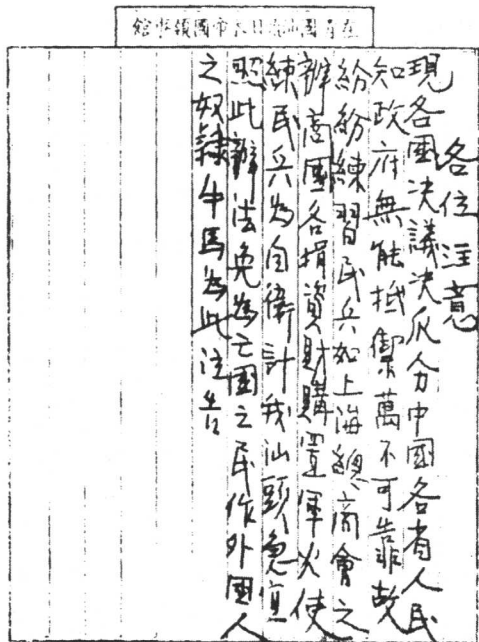 在支那國汕頭日本帝國領事館
各位注意
現各國決議決瓜分中國各省人民
知政府無能抵禦萬不可靠故
紛紛練習民兵如上海總商會之
辦商團各捐資財購置軍火使
練民兵為自衛計我汕頭急宜
照此辦法免為亡國之民作外國人
之奴隸牛馬為此注告